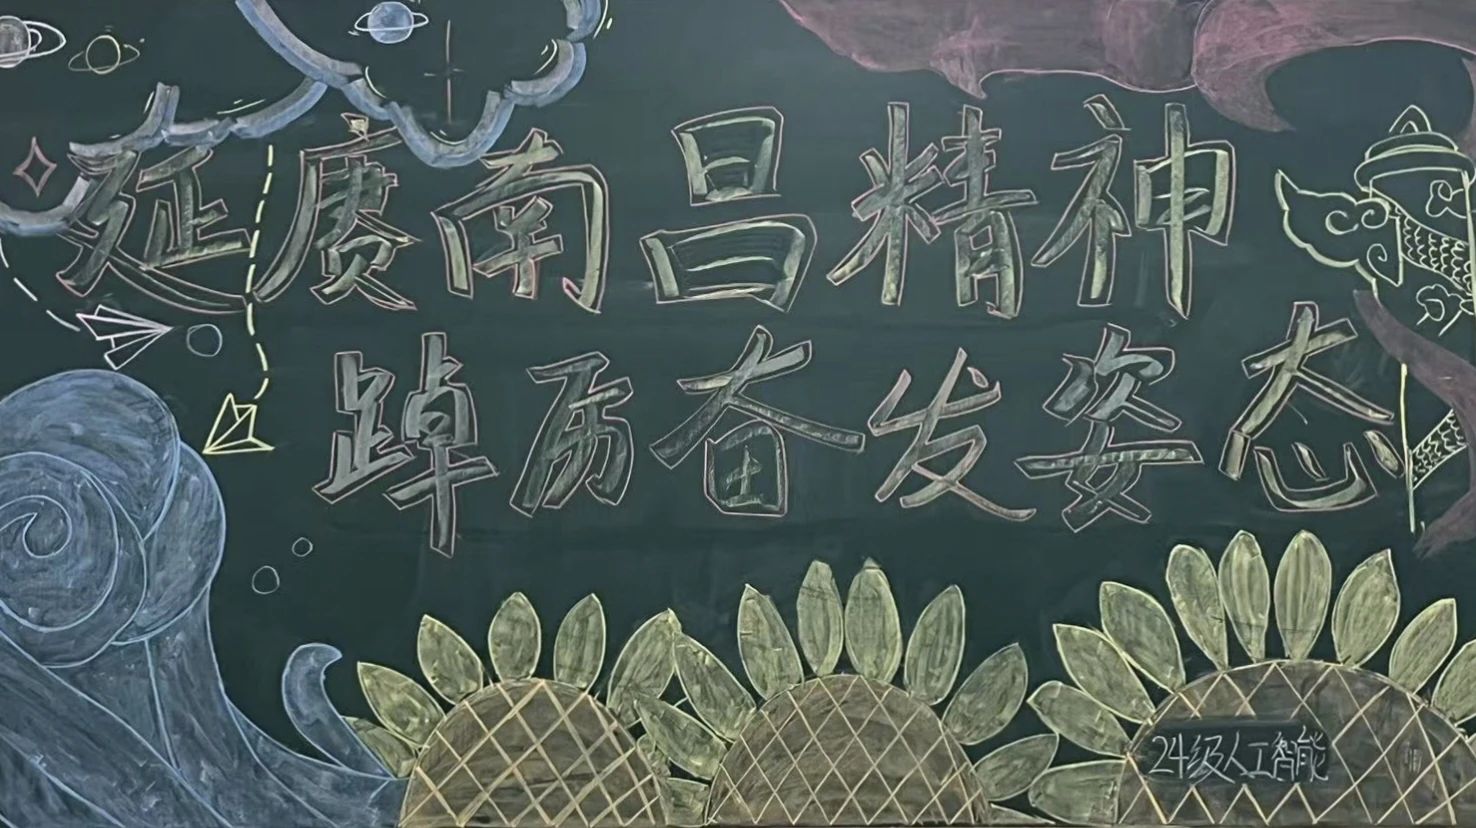 延赓南昌精神
踔厉奋发姿态
24级人工智能